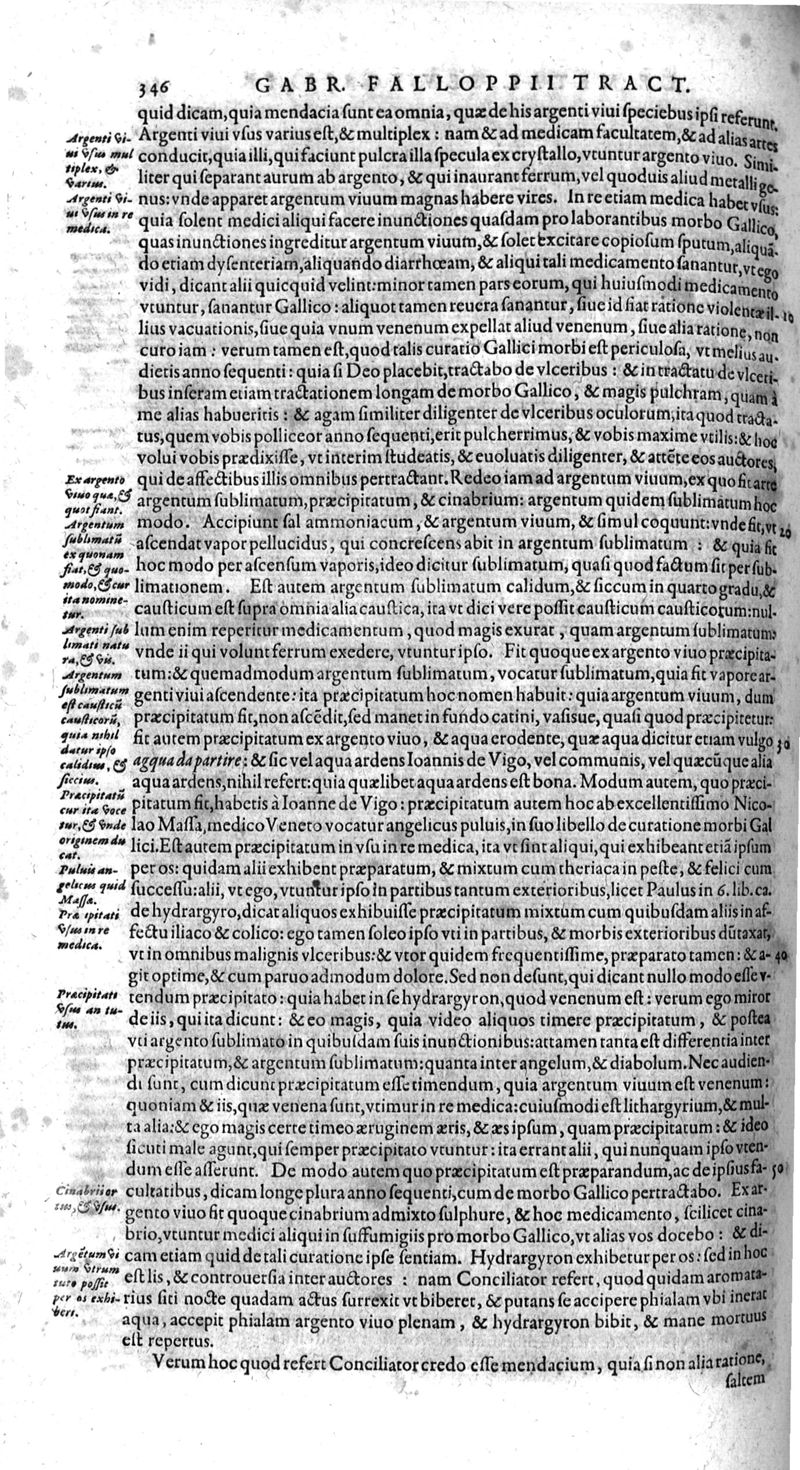 346 GABR. FALLOPPII TRACT.
quid dicam, quia mendacia ſunt ea omnia, quæ de his argenti viui ſpeciebus ipſi referunt.
Argenti viui vſus varius eſt, & multiplex: nam & ad medicam facultatem, & ad alias artes
conducit, quia illi, qui faciunt pulcra illa ſpecula ex cryſtallo, vtuntur argento viuo. Simi-
liter qui ſeparant aurum ab argento, & qui inaurant ferrum, vel quoduis aliud metalli ge-
nus: vnde apparet argentum viuum magnas habere vires. In re etiam medica habet vſus:
quia ſolent medici aliqui facere inunctiones quaſdam pro laborantibus morbo Gallico,
quas inunctiones ingreditur argentum viuum, & ſolet excitare copioſum ſputum, aliquã-
do etiam dyſenteriam, aliquando diarrhœam, & aliqui tali medicamento ſanantur, vt ego
vidi, dicant alii quicquid velint: minor tamen pars eorum, qui huiuſmodi medicamento
vtuntur, ſanantur Gallico: aliquot tamen reuera ſanantur, ſiue id fiat ratione violentæ il- 10
lius vacuationis, ſiue quia vnum venenum expellat aliud venenum, ſiue alia ratione, non
curo iam: verum tamen eſt, quod talis curatio Gallici morbi eſt periculoſa, vt melius au-
dietis anno ſequenti: quia ſi Deo placebit, tractabo de vlceribus: & in tractatu de vlceri-
bus inferam etiam tractationem longam de morbo Gallico, & magis pulchram, quam à
me alias habueritis: & agam ſimiliter diligenter de vlceribus oculorum; ita quod tracta-
tus, quem vobis polliceor anno ſequenti, erit pulcherrimus, & vobis maxime vtilis: & hoc
volui vobis prædixiſſe, vt interim ſtudeatis, & euoluatis diligenter, & attẽte eos auctores,
qui de affectibus illis omnibus pertractant. Redeo iam ad argentum viuum, ex quo fit arte
argentum ſublimatum, præcipitatum, & cinabrium: argentum quidem ſublimatum hoc
modo. Accipiunt ſal ammoniacum, & argentum viuum, & ſimul coquunt: vnde fit, vt 20
aſcendat vapor pellucidus, qui concreſcens abit in argentum ſublimatum: & quia fit
hoc modo per aſcenſum vaporis, ideo dicitur ſublimatum, quaſi quod factum ſit per ſub-
limationem. Eſt autem argentum ſublimatum calidum, & ſiccum in quarto gradu, &
cauſticum eſt ſupra omnia alia cauſtica, ita vt dici vere poſſit cauſticum cauſticorum: nul-
lum enim reperitur medicamentum, quod magis exurat, quam argentum ſublimatum:
vnde ii qui volunt ferrum exedere, vtuntur ipſo. Fit quoque ex argento viuo præcipita-
tum: & quemadmodum argentum ſublimatum, vocatur ſublimatum, quia fit vapore ar-
genti viui aſcendente: ita præcipitatum hoc nomen habuit: quia argentum viuum, dum
præcipitatum fit, non aſcẽdit, ſed manet in fundo catini, vaſiſue, quaſi quod præcipitetur:
fit autem præcipitatum ex argento viuo, & aqua erodente, quæ aqua dicitur etiam vulgo 30
agqua da partire: & ſic vel aqua ardens Ioannis de Vigo, vel communis, vel quæcũque alia
aqua ardens, nihil refert: quia quælibet aqua ardens eſt bona. Modum autem, quo præci-
pitatum fit, habetis à Ioanne de Vigo: præcipitatum autem hoc ab excellentiſſimo Nico-
lao Maſſa, medico Veneto vocatur angelicus puluis, in ſuo libello de curatione morbi Gal
lici. Eſt autem præcipitatum in vſu in re medica, ita vt ſint aliqui, qui exhibeant etiã ipſum
per os: quidam alii exhibent præparatum, & mixtum cum theriaca in peſte, & felici cum
ſucceſſu: alii, vt ego, vtuntur ipſo in partibus tantum exterioribus, licet Paulus in 6. lib. ca.
de hydrargyro, dicat aliquos exhibuiſſe præcipitatum mixtum cum quibuſdam aliis in af-
fectu iliaco & colico: ego tamen ſoleo ipſo vti in partibus, & morbis exterioribus dũtaxat,
vt in omnibus malignis vlceribus: & vtor quidem frequentiſſime, præparato tamen: & a- 40
git optime, & cum paruo admodum dolore. Sed non deſunt, qui dicant nullo modo eſſe v-
tendum præcipitato: quia habet in ſe hydrargyron, quod venenum eſt: verum ego miror
de iis, qui ita dicunt: & eo magis, quia video aliquos timere præcipitatum, & poſtea
vti argento ſublimato in quibuſdam ſuis inunctionibus: attamen tanta eſt differentia inter
præcipitatum, & argentum ſublimatum: quanta inter angelum, & diabolum. Nec audien-
di ſunt, cum dicunt præcipitatum eſſe timendum, quia argentum viuum eſt venenum:
quoniam & iis, quæ venena ſunt, vtimur in re medica: cuiuſmodi eſt lithargyrium, & mul-
ta alia: & ego magis certe timeo æruginem æris, & æs ipſum, quam præcipitatum: & ideo
ſicuti male agunt, qui ſemper præcipitato vtuntur: ita errant alii, qui nunquam ipſo vten-
dum eſſe aſſerunt. De modo autem quo præcipitatum eſt præparandum, ac de ipſius fa- 50
cultatibus, dicam longe plura anno ſequenti, cum de morbo Gallico pertractabo. Ex ar-
gento viuo fit quoque cinabrium admixto ſulphure, & hoc medicamento, ſcilicet cina-
brio, vtuntur medici aliqui in ſuffumigiis pro morbo Gallico, vt alias vos docebo: & di-
cam etiam quid de tali curatione ipſe ſentiam. Hydrargyron exhibetur per os: ſed in hoc
eſt lis, & controuerſia inter auctores: nam Conciliator refert, quod quidam aromata-
rius ſiti nocte quadam actus ſurrexit vt biberet, & putans ſe accipere phialam vbi inerat
aqua, accepit phialam argento viuo plenam, & hydrargyron bibit, & mane mortuus
eſt repertus.
Verum hoc quod refert Conciliator credo eſſe mendacium, quia ſi non alia ratione,
ſaltem
Argenti vi-
ui vſus mul
tiplex, &
varius.
Argenti vi-
ui vſus in re
medica.
Ex argento
viuo quæ, &
quot fiant.
Argentum
ſublimatũ
ex quonam
fiat, & quo-
modo, & cur
ita nomine-
tur.
Argenti ſub
limati natu
ra, & vis.
Argentum
ſublimatum
eſt cauſticũ
cauſticorũ,
quia nihil
datur ipſo
calidius, &
ſiccius.
Præcipitatũ
cur ita voce
tur, & vnde
originem du
cat.
Puluis an-
gelicus quid
Maſſæ.
Præcipitati
vſus in re
medica.
Præcipitati
vſus an tu-
tus.
Cinabrii or
tus, & vſus.
Argẽtum vi
uum vtrum
tuto poſſit
per os exhi-
beri.